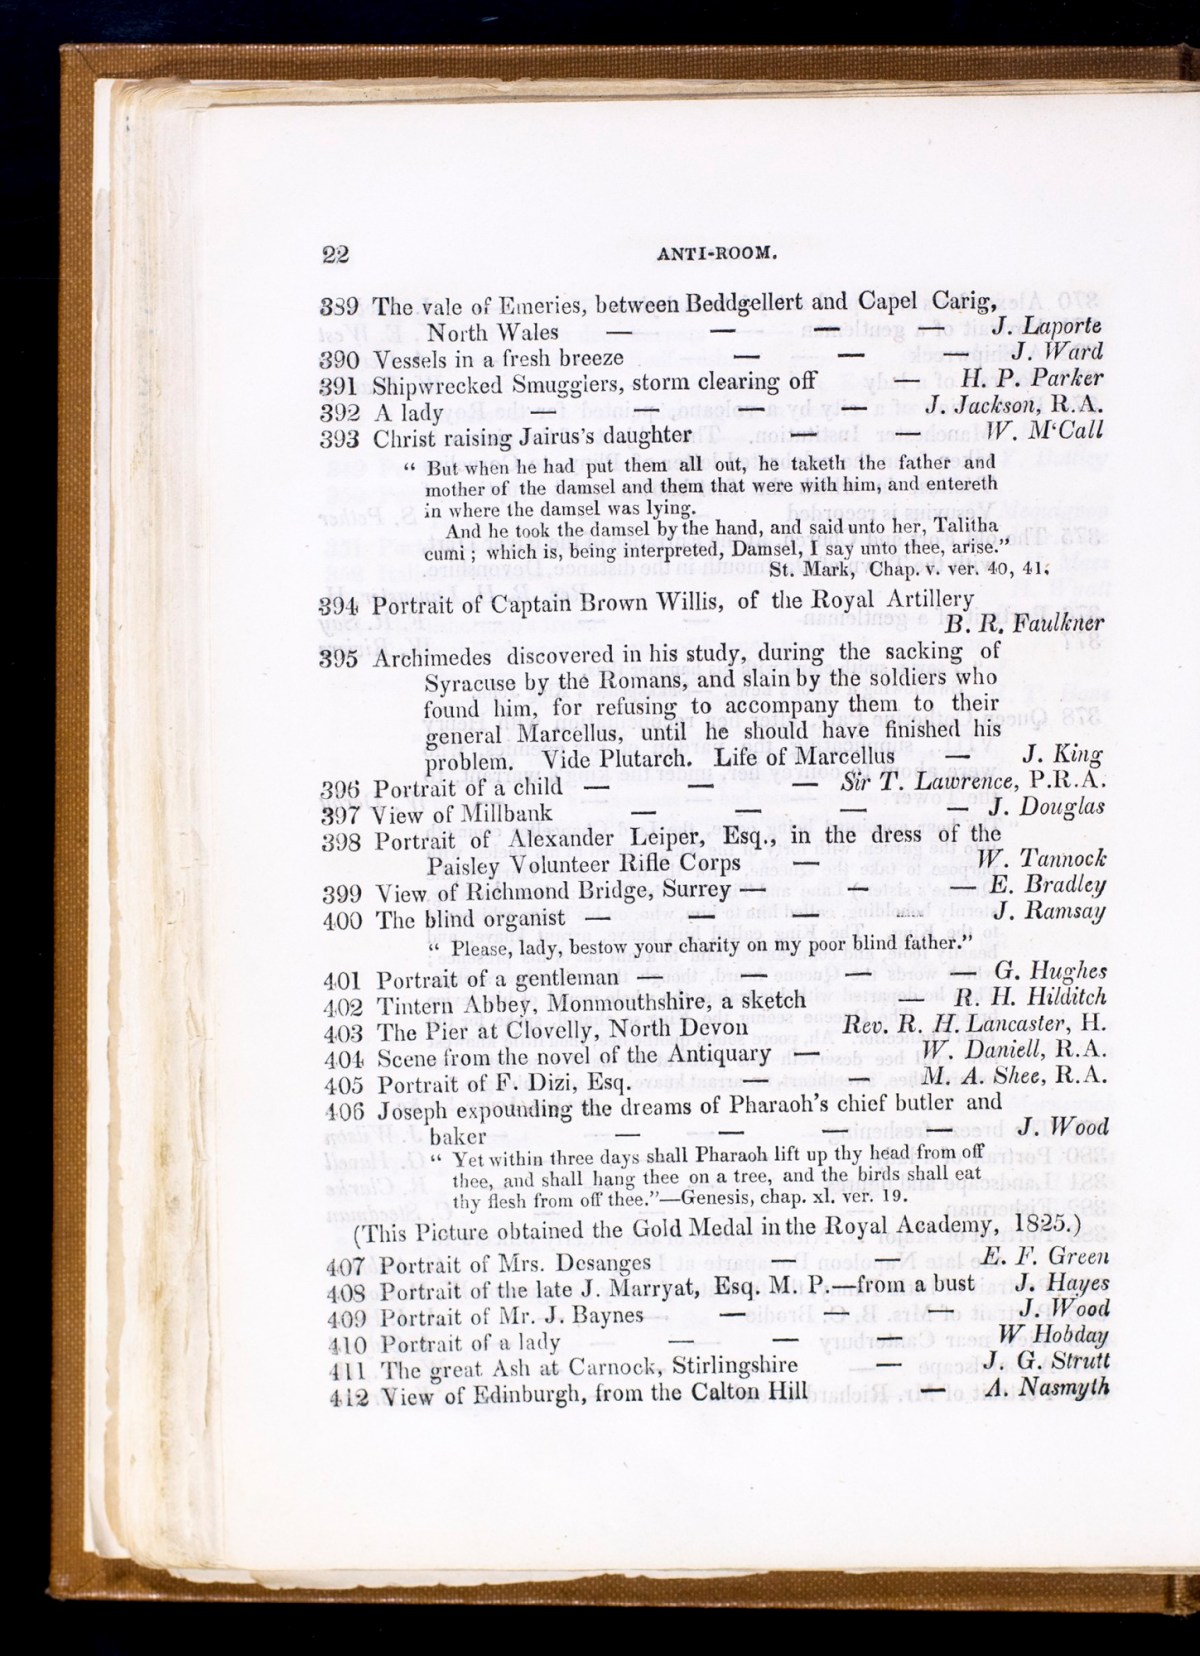 22 ANTI-ROOM.
389 The vale of Emeries, between Beddgellert and Capel Carig,
North Wales — — — — J. Laporte
390 Vessels in a fresh breeze — — — J. Ward
391 Shipwrecked Smugglers, storm clearing off — H. P. Parker
392 A lady — — — — J. Jackson, R.A.
393 Christ raising Jairus's daughter — — W. M‘Call
“ But when he had put them all out, he taketh the father and
mother of the damsel and them that were with him, and entereth
in where the damsel was lying.
And he took the damsel by the hand, and said unto her, Talitha
cumi ; which is, being interpreted, Damsel, I say unto thee, arise.”
St. Mark, Chap. v. ver. 40, 41.
394 Portrait of Captain Brown Willis, of the Royal Artillery
B. R. Faulkner
395 Archimedes discovered in his study, during the sacking of
Syracuse by the Romans, and slain by the soldiers who
found him, for refusing to accompany them to their
general Marcellus, until he should have finished his
problem. Vide Plutarch. Life of Marcellus — J. King
396 Portrait of a child — — — Sir T. Lawrence, P.R.A.
397 View of Millbank — — — — J. Douglas
398 Portrait of Alexander Leiper, Esq., in the dress of the
Paisley Volunteer Rifle Corps — W. Tannock
399 View of Richmond Bridge, Surrey — — — E. Bradley
400 The blind organist — — — — J. Ramsay
“ Please, lady, bestow your charity on my poor blind father.”
401 Portrait of a gentleman — — — — G. Hughes
402 Tintern Abbey, Monmouthshire, a sketch — R. H. Hilditch
403 The Pier at Clovelly, North Devon Rev. R. H. Lancaster, H.
404 Scene from the novel of the Antiquary — W. Daniell, R.A.
405 Portrait of F. Dizi, Esq. — — M. A. Shee, R.A.
406 Joseph expounding the dreams of Pharaoh's chief butler and
baker — — — — J. Wood
“ Yet within three days shall Pharaoh lift up thy head from off
thee, and shall hang thee on a tree, and the birds shall eat
thy flesh from off thee.”—Genesis, chap. xl. ver. 19.
(This Picture obtained the Gold Medal in the Royal Academy, 1825.)
407 Portrait of Mrs. Desanges — — E. F. Green
408 Portrait of the late J. Marryat, Esq. M. P.—from a bust J. Hayes
409 Portrait of Mr. J. Baynes — — — J. Wood
410 Portrait of a lady — — — W Hobday
411 The great Ash at Carnock, Stirlingshire — J. G. Strutt
412 View of Edinburgh, from the Calton Hill — A. Nasmyth